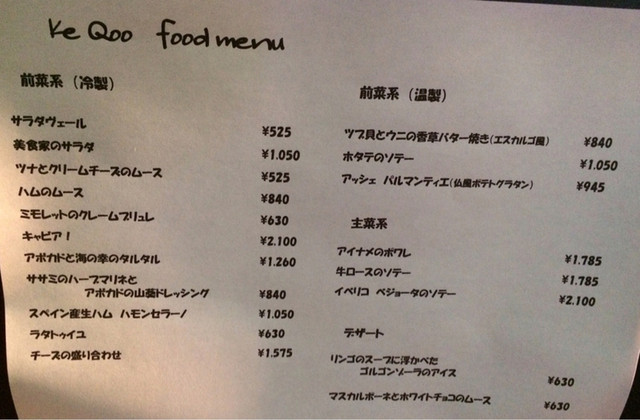 Ke Qoo food menu
前菜系（冷製）
サラダヴェール ¥525
美食家のサラダ ¥1.050
ツナとクリームチーズのムース ¥525
ハムのムース ¥840
ミモレットのクレームブリュレ ¥630
キャビア！ ¥2.100
アボカドと海の幸のタルタル ¥1.260
ササミのハーブマリネと
アボカドの山葵ドレッシング ¥840
スペイン産生ハム ハモンセラーノ ¥1.050
ラタトゥイユ ¥630
チーズの盛り合わせ ¥1.575
前菜系（温製）
ツブ貝とウニの香草バター焼き(エスカルゴ風) ¥840
ホタテのソテー ¥1.050
アッシェ パルマンティエ(仏風ポテトグラタン) ¥945
主菜系
アイナメのポワレ ¥1.785
牛ロースのソテー ¥1.785
イベリコ ベジョータのソテー ¥2.100
デザート
リンゴのスープに浮かべた
ゴルゴンゾーラのアイス ¥630
マスカルポーネとホワイトチョコのムース ¥630